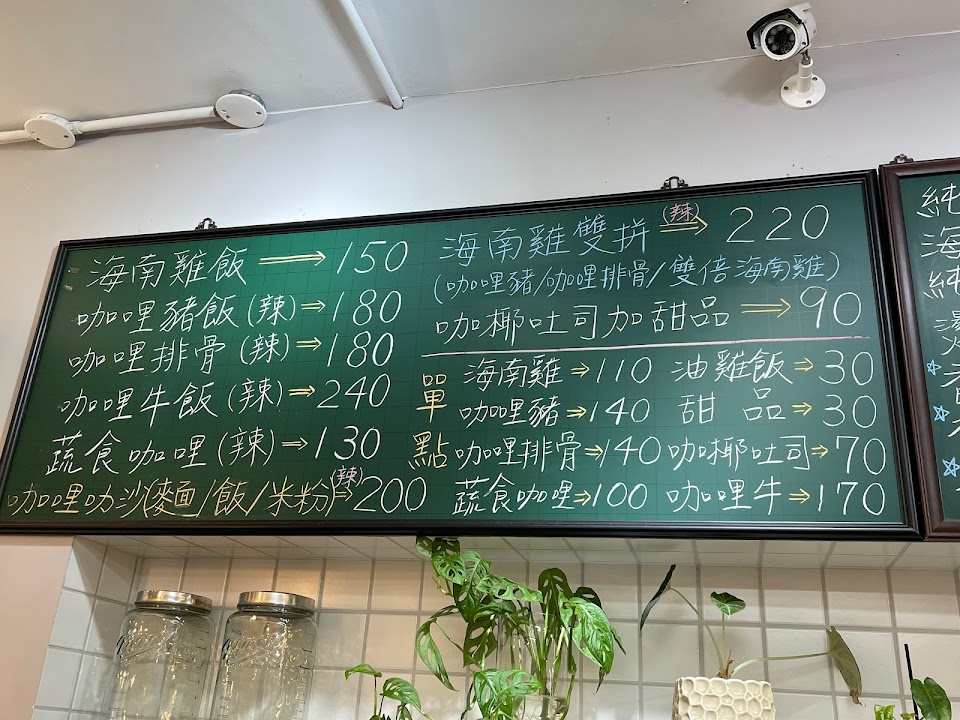 海南雞飯→150
咖哩豬飯(辣)⇒180
咖哩排骨(辣)⇒180
咖哩牛飯(辣)⇒240
蔬食咖哩(辣)⇒130
咖哩叻沙(麥面/飯/米粉)(辣)⇒200
海南雞雙拼(辣)⇒220
(咖哩豬/咖哩排骨/雙倍海南雞)
咖椰吐司加甜品⇒90
單點
海南雞⇒110 油雞飯⇒30
咖哩豬⇒140 甜品⇒30
咖哩排骨⇒140 咖椰吐司⇒70
蔬食咖哩⇒100 咖哩牛⇒170
純
海
純